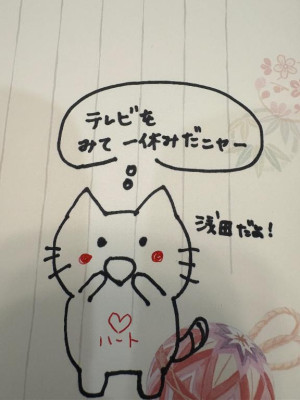 テレビを
みて一休みだニャー
浅田だよ!
ハート